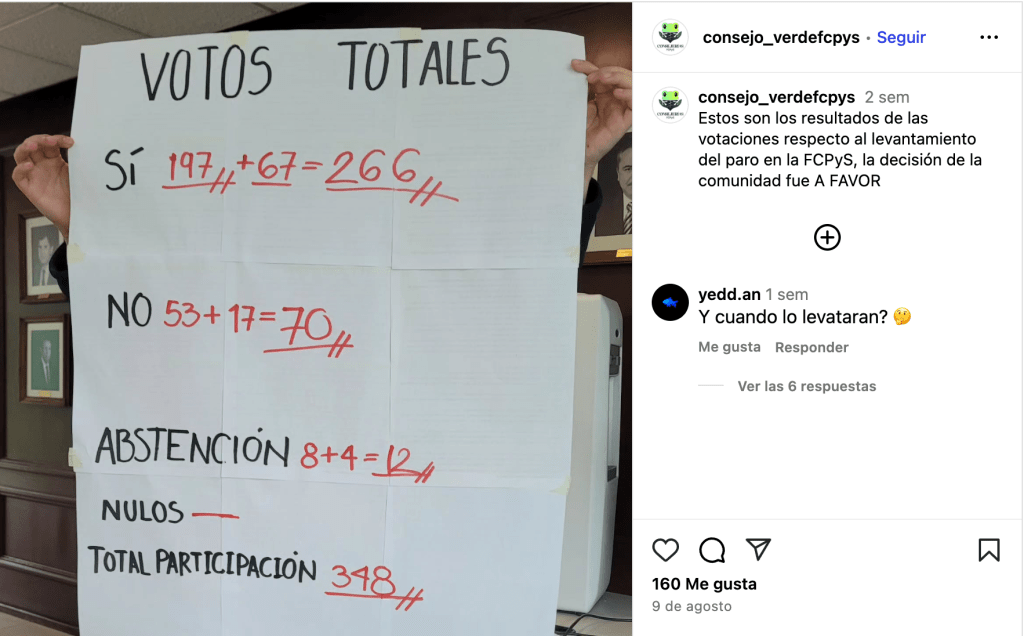 VOTOS TOTALES
SÍ 197 + 67 = 266
NO 53 + 17 = 70
ABSTENCIÓN 8 + 4 = 12
NULOS —
TOTAL PARTICIPACIÓN 348
consejo_verdefcpys • Seguir
consejo_verdefcpys 2 sem
Estos son los resultados de las
votaciones respecto al levantamiento
del paro en la FCPyS, la decisión de la
comunidad fue A FAVOR
yedd.an 1 sem
Y cuando lo levataran? 🤔
Me gusta Responder
Ver las 6 respuestas
160 Me gusta
9 de agosto